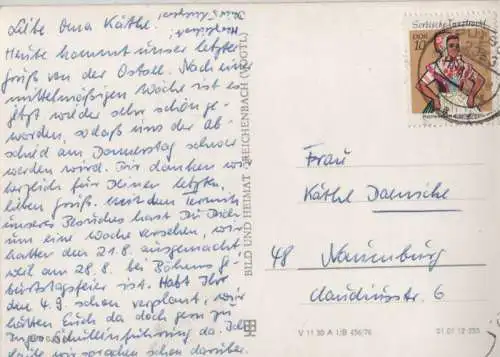 Liebe Oma Käthe!
Heute kommt unser letzter
Gruß von der Ostsee. Nach einer
mittelmäßigen Woche ist es
jetzt wieder sehr schön ge-
worden, sodaß uns der Ab-
schied am Donnerstag schwer
werden wird. Wir danken wir
herzlich für Deinen letzten,
lieben Gruß. Mit dem Termin
unseres Besuches hast Du Dich
um eine Woche versehen, wir
hatten den 21.8. ausgemacht
weil am 28.8. bei Böhms Ge-
burtstagsfeier ist. Habt Ihr
den 4.9. schon verplant, wir
hätten Euch da doch gern zu
Schuleinführung da. Ich
glaube wir sprachen schon darüber.
BILD UND HEIMAT REICHENBACH (VOGTL)
Sorbische Tanztracht
DDR 10
Frau
Käthe
48 Naumburg
Claudiusstr. 6
V 11 30 A 1/B 456/76
01 01 12 055